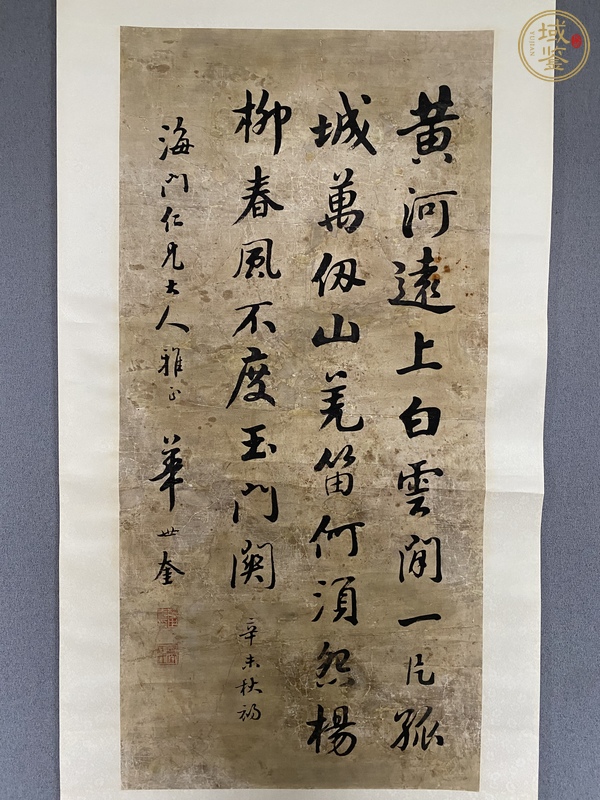 黄河遠上白雲間一片孤
城萬仞山羌笛何須怨楊
柳春風不度玉門關
辛未秋初
海門仁兄大人雅正
華世奎
域鉴
YUJIAN